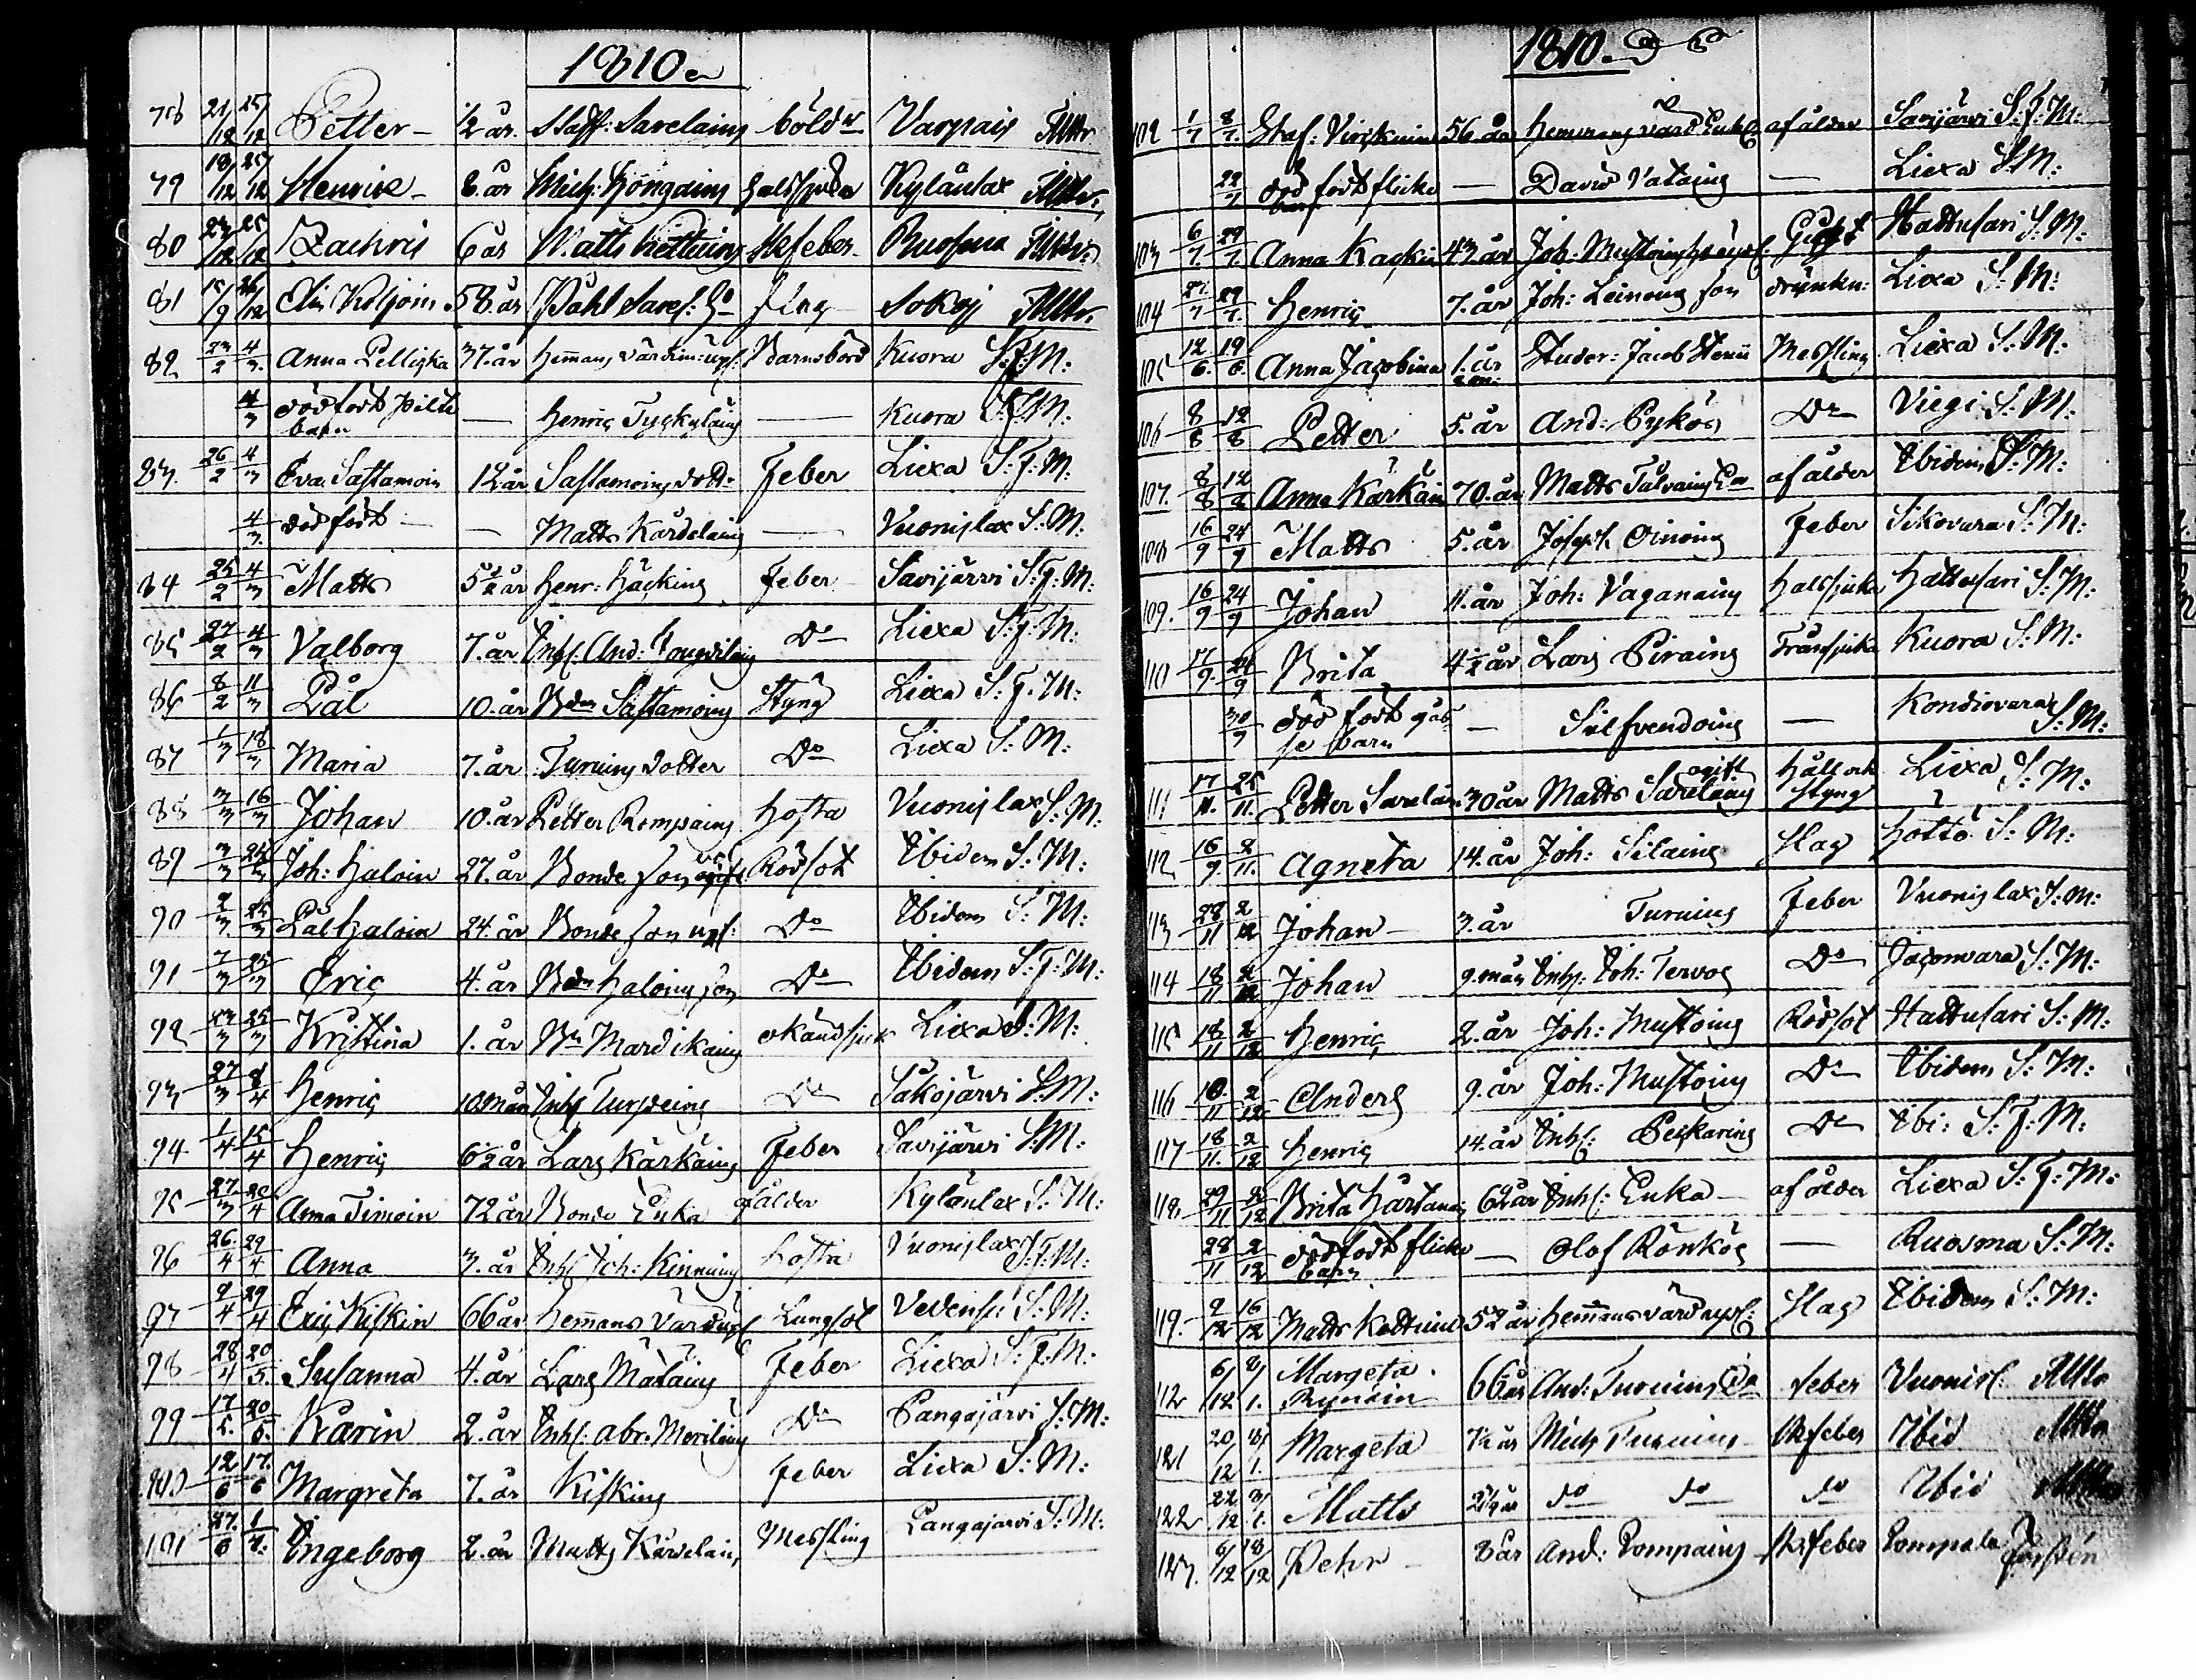 1810
78 21/12 25/12 Petter ½ år. Staff: Savelaing böld Varpais
79 18/12 25/12 Henric 8. år Mich: Hongaing halssjuka Kylänlax
80 23/12 25/12 Zachris 6 år Matts Kettuing Skfeber Ruosma
81 15/9 26/12 Elin Koljoin 58. år Påhl Savel: Hu Slag Sokoj
82 23/2 4/3 Anna Pelliska 37. år hemans värdin: upl: Barnsbörd Kuora S:f:M:
4/3 dödfödt pilte barn — Henric Tyckyläing — Kuora S:f:M:
83. 26/2 4/3 Eva Sastamoin 12 år Sastamoing dott: Feber Liexa S:f:M:
4/3 dödfödt — — Matts Kärdelaing — Vuonislax S:M:
84 25/2 4/3 Matts 5½ år Henr: Häcking Feber Savijärvi S:f:M:
85 27/2 4/3 Valborg 7. år Inhs. And: Do Liexa S:f:M:
86 8/2 11/3 Pål 10. år Bdn Sastamoing Styng Liexa S:f:M:
87 1/3 18/3 Maria 7. år Turuing dotter Do Liexa S:M:
88 3/3 16/3 Johan 10. år Petter Rompaing Hosta Vuonislax S:M:
89 3/3 25/3 Joh: Haloin 27. år Bonde son ogift Rödsot Ibidem S:M:
90 2/3 25/3 Pål Haloin 24. år Bonde son upl: Do Ibidem S:M:
91 7/3 25/3 Eric 4. år Bdn Haloing son Do Ibidem S:f:M:
92 23/3 25/3 Kristina 1. år Bn Mardikaing okändsjuk Liexa S:M:
93 27/3 8/4 Henric 10. mån Inhs Turpeing Do Säkojärvi S:M:
94 1/4 15/4 Henric 6½ år Lars Kärkäing Feber Savijärvi S:M:
95 27/3 20/4 Anna Timoin 72 år Bonde Enka af ålder Kylänlax S:M:
96 26/4 29/4 Anna 3. år Inhs Joh: Kinnuing Hosta Vuonislax S:f:M:
97 9/4 29/4 Eric Kiskin 66 år Hemans värd upl Lungsot Vedensu S:M:
98 28/4 20/5 Susanna 4. år Lars Mätäing Feber Liexa S:f:M:
99 17/5. 20/5. Karin 2. år Inhs: Abr. Meriläing Do Pangajärvi S:M:
100 12/6 17/6 Margreta 7. år Kisking Feber Liexa S:M:
101 27/6 1/7. Ingeborg 2. år Matts Kärdelaing Messling Pangajarvi S:M:
1810.
102 1/7 8/7. Staf: Virskuin 56. år Hemmans värd af ålder Savijärvi S:f:M:
29/7 död födt flicke barn — David Vataing — Liexa S:M:
103 6/7. 29/7. Anna Kackin 43. år Joh: Mustoing Gickt Hattusari S:M:
104 27/7 29/7. Henric 7. år Joh: Leinoing son drunkn: Liexa S:M:
105 12/6. 19/8. Anna Jacobina 1. år Studer: Jacob Stenii Messling Liexa S:M:
106 8/8 12/8 Petter 5. år And: Pykös Do Viegi S:M:
107. 8/8 12/8 Anna Kärkäin 70. år Matts Talvaing Ea af ålder Ibidem S:f:M:
108 16/9 24/9 Matts 5. år Joseph Oinoing Feber Sikovara S:M:
109. 16/9 24/9 Johan 11. år Joh: Vaganaing halssjuka Hattusari S:M:
110 17/9. 24/9 Brita 4½ år Lars Piraing Transjuka Kuora S:M:
30/9 död födt gåsse barn — Silfvendoing — Kondiovara S:M:
111 17/11. 25/11. Petter Savelain 30 år Matts Savelaing ogift håll och styng Liexa S:M:
112 16/9. 2/11. Agneta 14. år Joh: Silaing Slag Höttö S:M:
113 28/11 2/12 Johan 3. år Turuing Feber Vuonislax S:M:
114 18/11 2/12 Johan 9. mån Inhs: Joh: Tervoe Do Jaconvara S:M:
115 18/11 2/12 Henric 2. år Joh: Mustoing Rödsot Hattusari S:M:
116 18/11 2/12 Anders 9. år Joh: Mustoing Do Ibidem S:M:
117 18/11. 2/12 Henric 14. år Inhs: Peskaring Do Ibi: S:f:M:
118. 29/11 2/12 Brita Hartanin 62 år Inhs: Enka — af ålder Liexa S:f:M:
28/11 2/12 dödfödt flicke barn — Olof Rönkös — Ruosma S:M:
119. 9/12 16/12 Matts Kettuin 52 år hemans värd upl: Slag Ibidem S:M:
112 6/12 8/1. Margeta Rynäin 66 år And: Turuing Ea feber Vuonisl:
121 20/12 8/1. Margeta ½ år Mich Turuing Skfeber Ibid
122 22/12 8/1. Matts 2½ år do do do Ibid
123. 6/12 18/12 Pehr 8 år And: Pompaing Skfeber Pompala Forstén